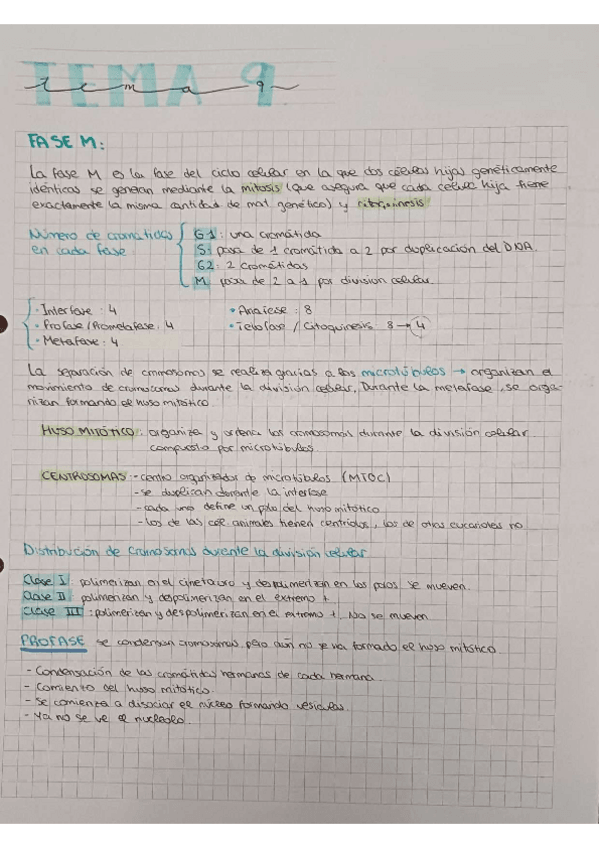 TEMA 9
tema 9
FASE M:
La fase M es la fase del ciclo celular en la que dos células hijas genéticamente
idénticas se generan mediante la mitosis (que asegura que cada célula hija tiene
exactamente la misma cantidad de mat genético) y citoquinesis
Número de cromátidas en cada fase
G1: una cromátida
S: pasa de 1 cromátida a 2 por duplicación del DNA.
G2: 2 cromátidas
M: pasa de 2 a 1 por division celular.
· Interfase: 4
· Profase/Prometafase: 4
· Metafase: 4
· Anafase: 8
· Telofase / Citoquinesis 8 → 4
La separación de cromosomas se realiza gracias a los microtúbulos → organizan el
movimiento de cromosomas durante la división celular. Durante la metafase, se orga-
nizan formando el huso mitótico.
HUSO MITÓTICO: organiza y ordena los cromosomas durante la división celular
compuesto por microtúbulos.
CENTROSOMAS: - centro organizador de microtúbulos (MTOC)
- se duplican durante la interfase
- cada uno define un polo del huso mitótico
- los de las cel animales tienen centriolos, los de otras eucariotas no
Distribución de cromosomas durante la división celular
Clase I: polimerizan en el cinetocoro y despolimerizan en los polos. se mueven.
Clase II: polimerizan y despolimerizan en el extremo +
Clase III: polimerizan y despolimerizan en el extremo +. No se mueven
PROFASE se condensan cromosomas, pero aún no se ha formado el huso mitótico.
- Condensación de las cromátidas hermanas de cada hermana
- Comienzo del huso mitótico.
- Se comienza a disociar el núcleo formando vesículas.
- Ya no se ve el nucleolo.